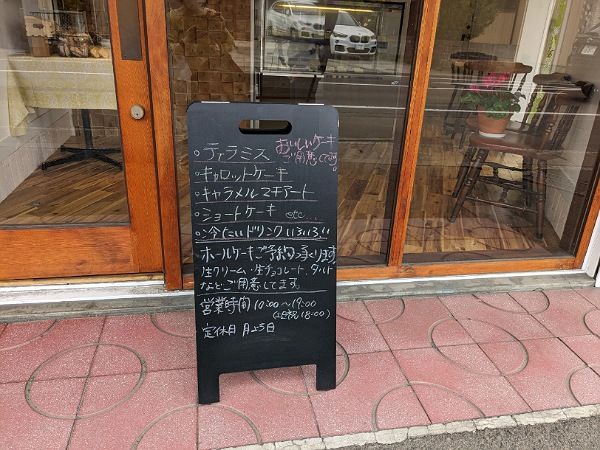 おいしいケーキ
ご用意してます。
○ティラミス
○キャロットケーキ
○キャラメルマキアート
○ショートケーキ etc...
○冷たいドリンクいろいろ
ホールケーキご予約承ります
生クリーム・生チョコレート、タルト
などご用意してます。
営業時間 10:00〜19:00
(日祝18:00)
定休日 月